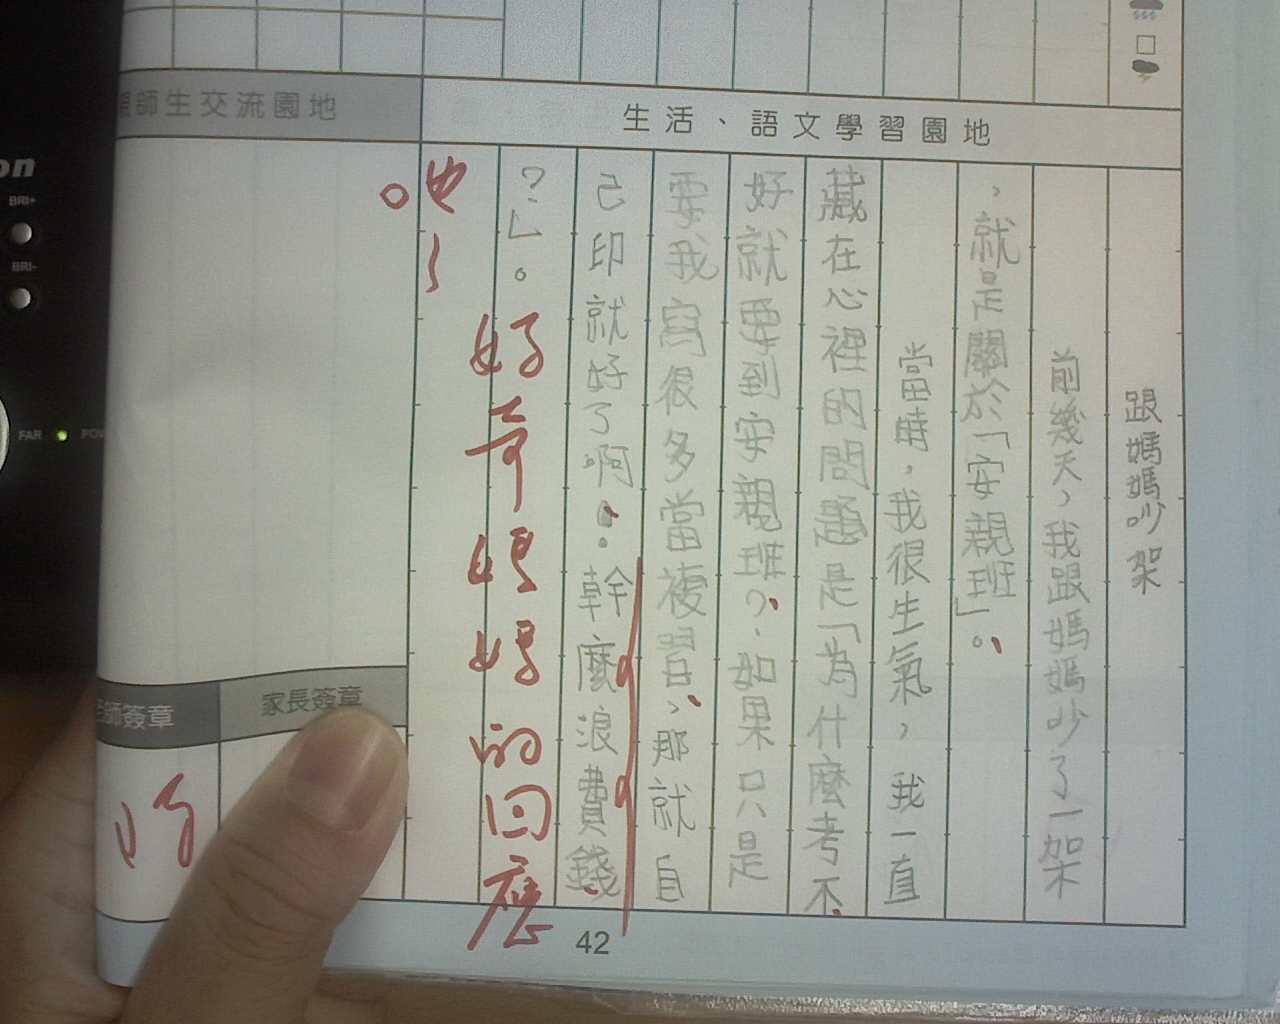 生活、語文學習園地
跟媽媽吵架
前幾天，我跟媽媽吵了一架
，就是關於「安親班」。
當時，我很生氣，我一直
藏在心裡的問題是「為什麼考不
好就要到安親班？如果只是
要我寫很多當複習，那就自
己印就好了啊。幹麼浪費錢
？」。
好奇媽媽的回應
師生交流園地
師簽章
家長簽章
42
on
BRI+
BRI-
FAR